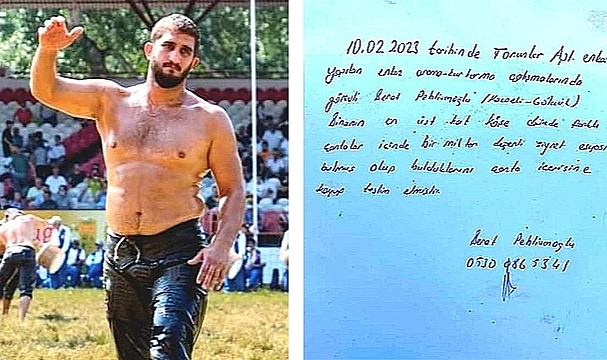 10.02.2023 tarihinde Torunlar Apt. enkaz
yapılan enkaz arama-kurtarma çalışmalarında
görevli Berat Pehlivanoğlu (Kocaeli-Gölcük)
Binanın en üst kat köşe dairede farklı
çantalar içinde bir miktar değerli ziynet eşyası
bulmuş olup bulduklarını çanta içerisine
koyup teslim etmiştir.
Berat Pehlivanoğlu
0530 086 5341